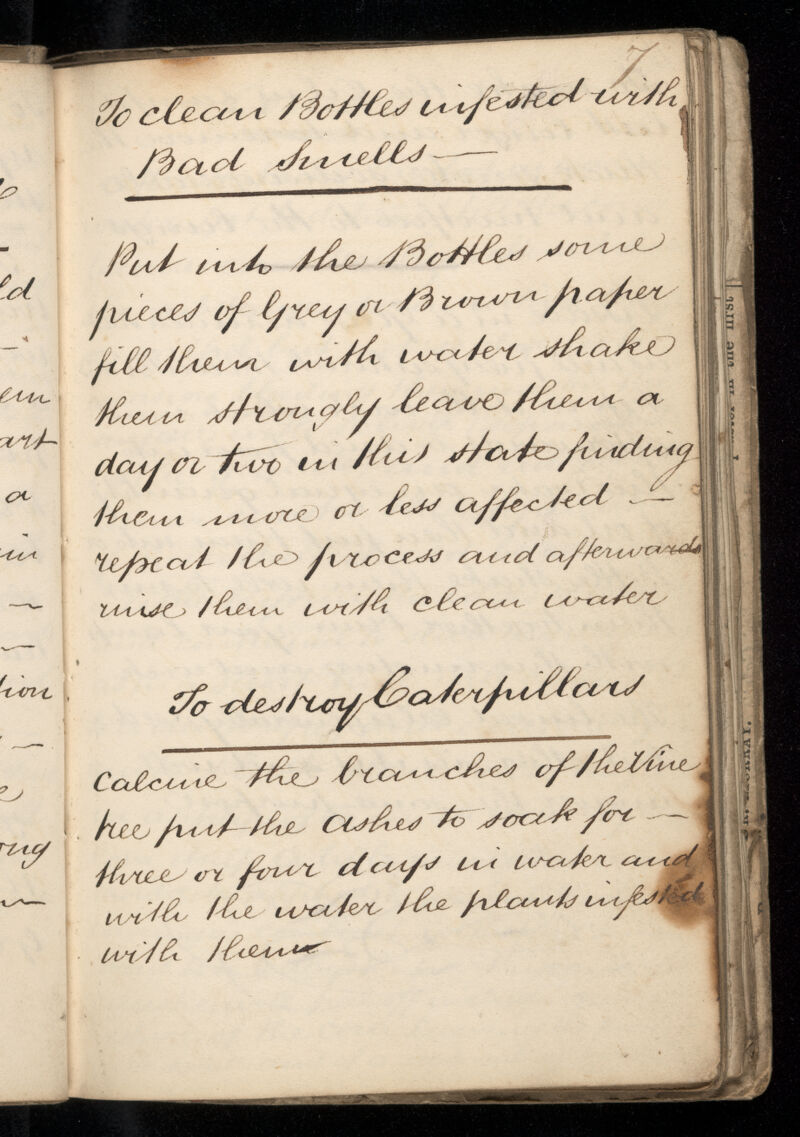 7
To clean Bottles infested with
Bad Smells —
Put into the Bottles some
pieces of Grey or Brown paper
fill them with water shake
them strongly leave them a
day or two in this state finding
them more or less affected —
repeat the process and afterwards
rinse them with clean water
To destroy Caterpillars
Calcine the branches of the Vine
tree put the ashes to soak for —
three or four days in water and
with the water the plants infested
with them
ld
em
art
a
in
tion
ong
in the first
MURRAY.